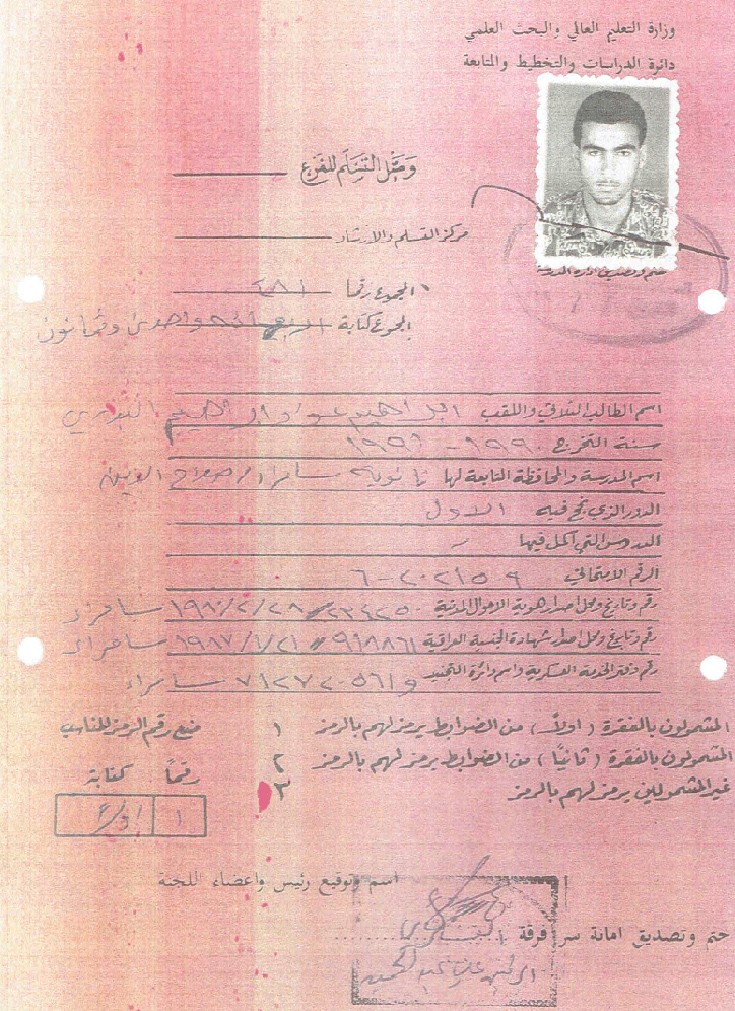 وزارة التعليم العالي والبحث العلمي
دائرة الدراسات والتخطيط والتابعة
وصل التسلم للفرع
مركز التسلم والارشاد
المجموع رقما ٤٨١
المجموع كتابة اربعمائة واحدى وثمانون
ختم وتصديق ادارة المدرسة
اسم الطالب الثلاثي واللقب ابراهيم عواد ابراهيم البدري
سنة التخرج ١٩٩٠ - ١٩٩١
اسم المدرسة والمحافظة التابعة لها ثانوية سامراء صلاح الدين
الدور الذي نجح فيه الاول
الدروس التي اكمل فيها -
الرقم الامتحاني
رقم وتاريخ ومحل اصدار هوية الاحوال المدنية ١٩٨٠/٢/٢٨ سامراء
رقم وتاريخ ومحل اصدار شهادة الجنسية العراقية ١٩٨٧/١/٢١ سامراء
رقم دفتر الخدمة العسكرية واسم دائرة التجنيد سامراء
المشمولون بالفقرة ( اولاً ) من الضوابط يرمز لهم بالرمز ١
ضع رقم الرمز المناسب
المشمولون بالفقرة ( ثانيًا ) من الضوابط يرمز لهم بالرمز ٢
رقمًا كتابة
غير المشمولين يرمز لهم بالرمز ٣
١
اسم وتوقيع رئيس واعضاء اللجنة
ختم وتصديق امانة سر فرقة